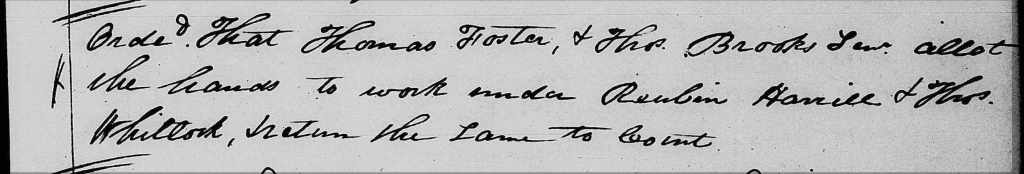 Orde^d. That Thomas Foster, & Thos. Brooks Senr. allot
the hands to work under Reubin Harriell & Thos.
Whitlock, & return the Same to Court